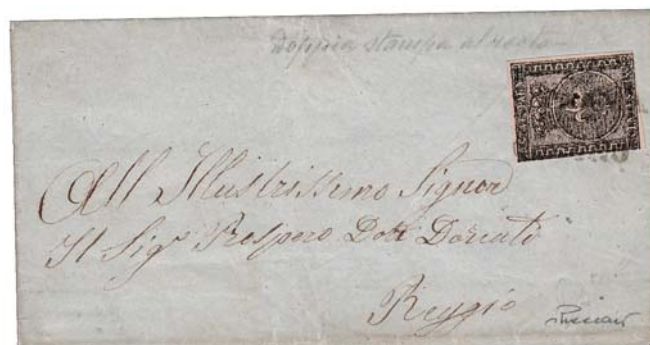 Doppia stampa al recto
All Illustrissimo Signor
Il Sig.r Prospero Dott Donati
Reggio